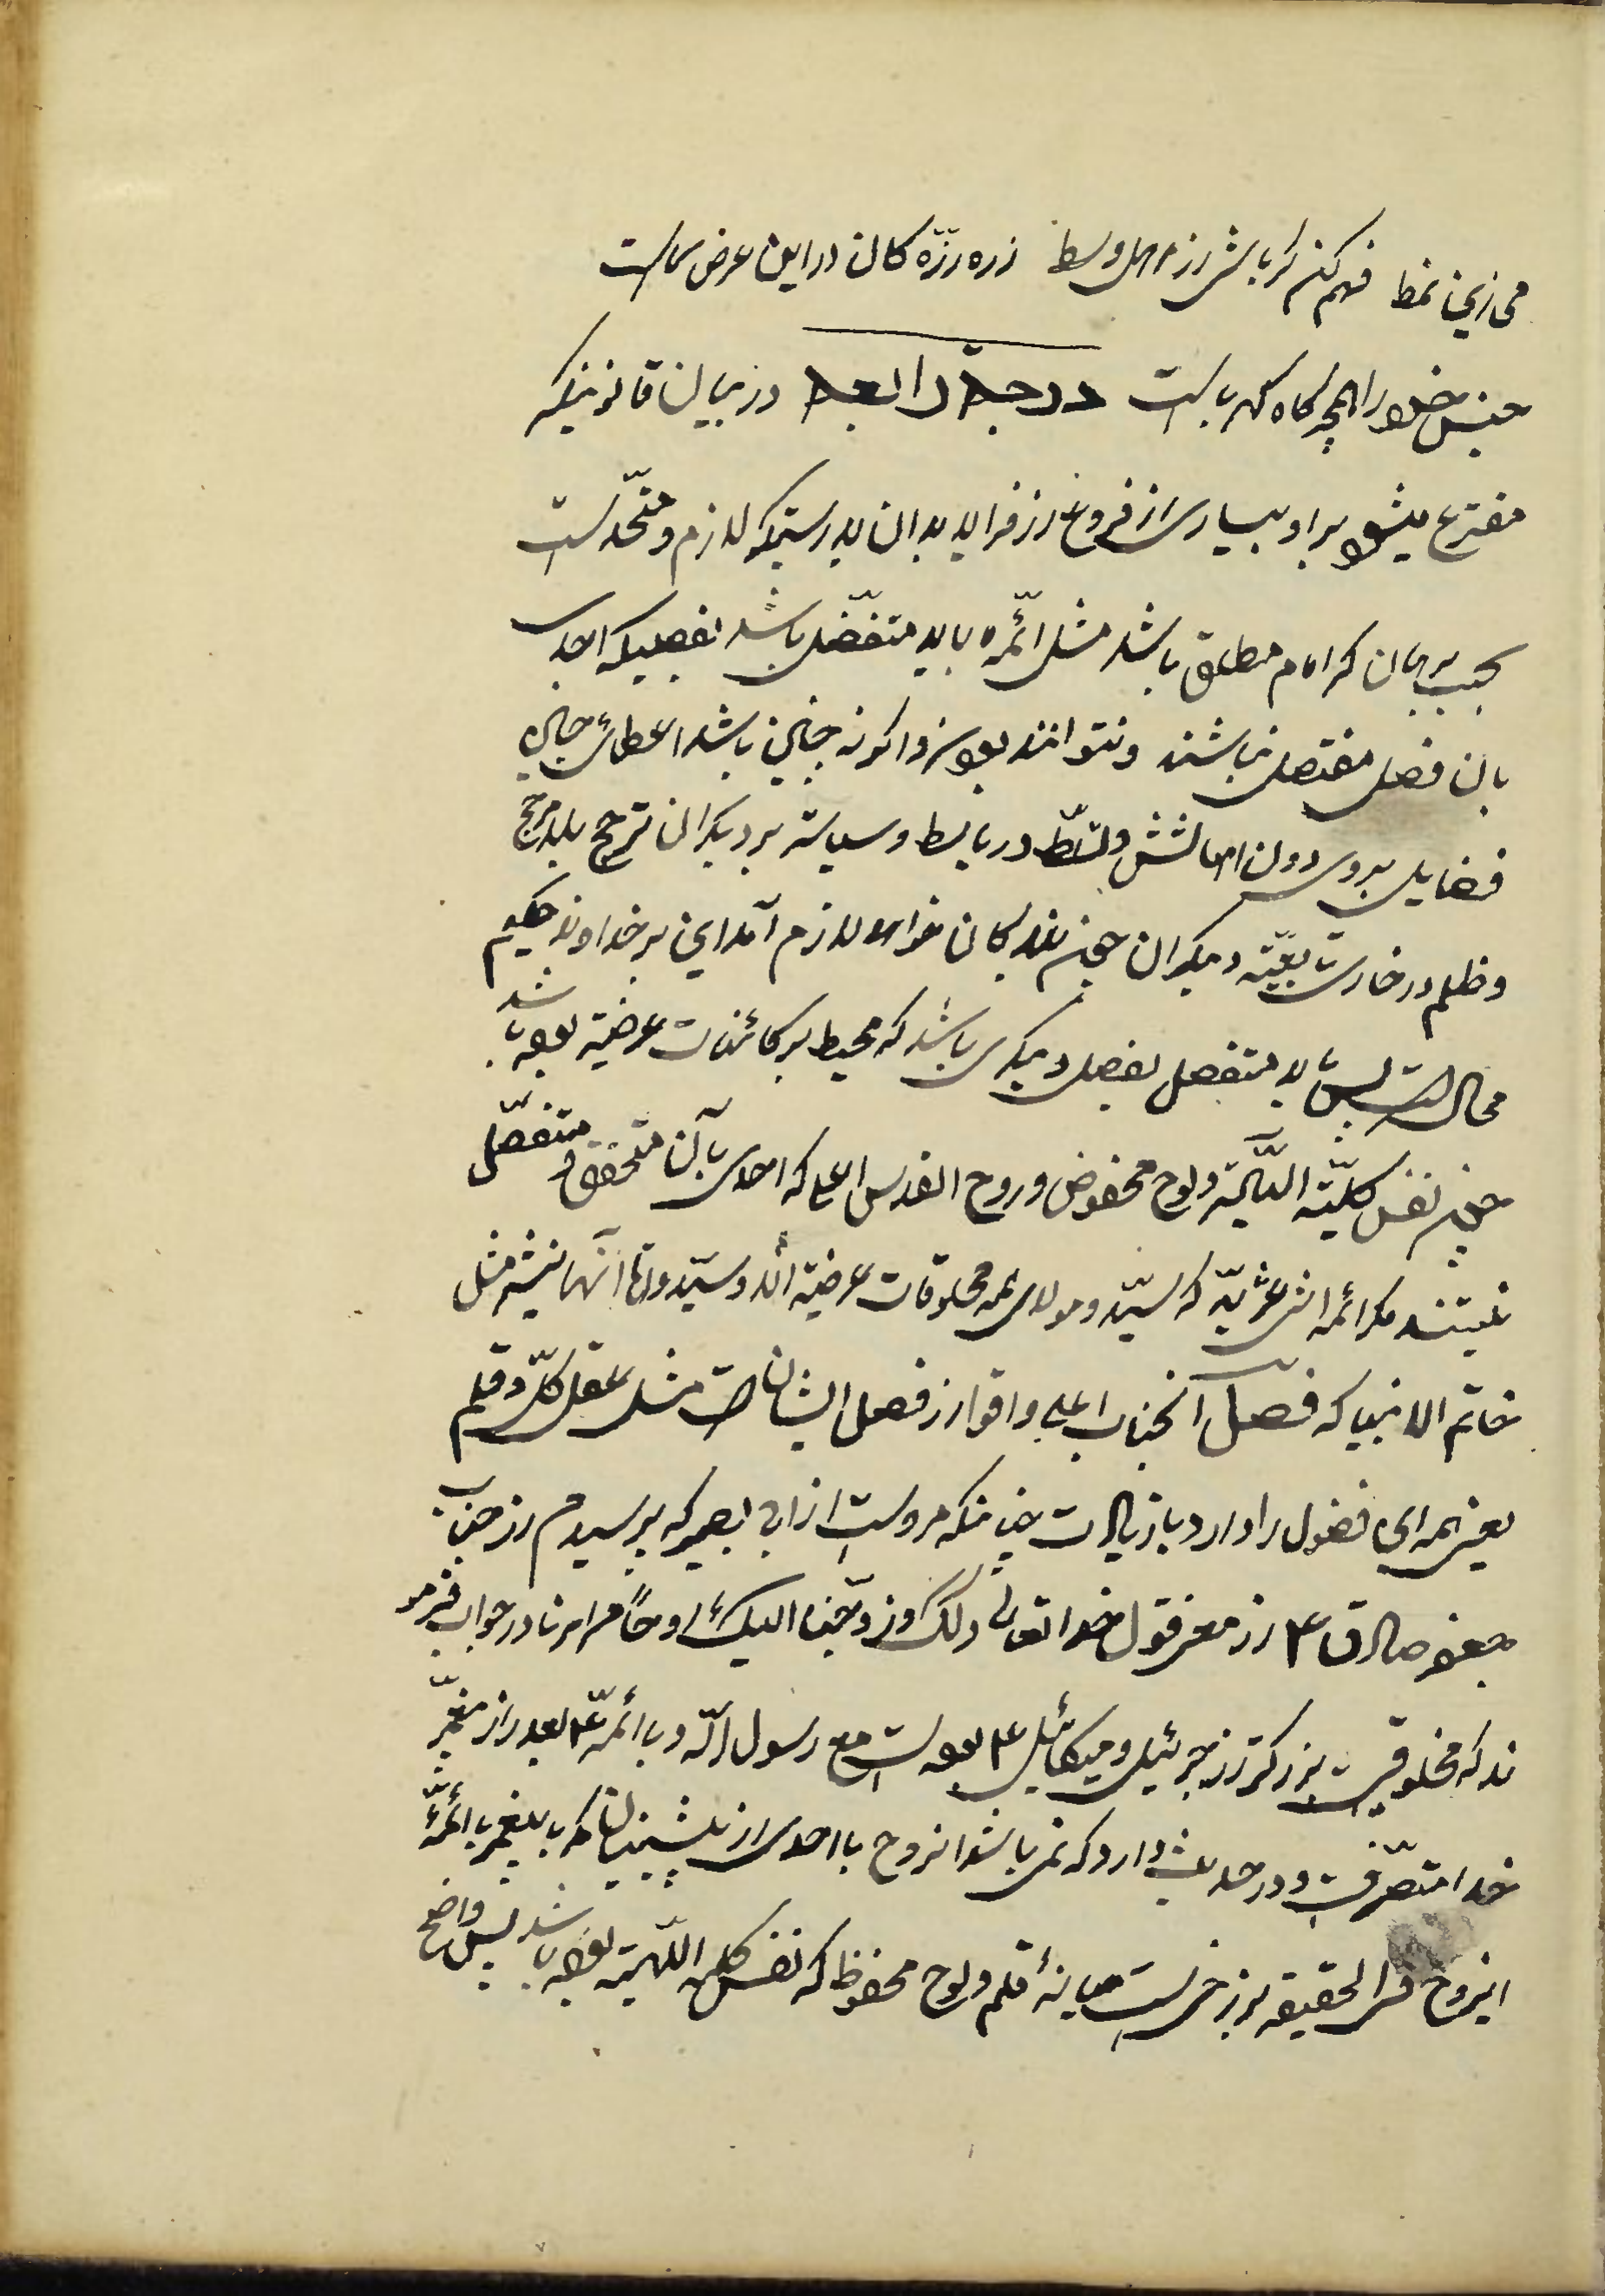 می زین نمط فهم کن گر باشی ز اهل وسط ذره ذرّه کان در این عرض سماست
جنس خود را همچه کاه کهرباست درجهٔ رابعه در بیان قانونیکه
متفرع میشود بر او بسیاری از فروع از فراید بدان بدرستیکه لازم و متحّد است
بحسب برهان که امام مطلق باشد مثل ائمّه باید متفضّل باشد بفضیلیکه احدی
بان فضل متفضل نباشند و نتوانند بود و اگر نه چنین باشد اعطای جمله
فضایل بروی دون امثالش و تسلّط در بابسط و سیاسته بر دیگران ترجیح بلامرجّح
و ظلم در تابعیّته دیگران چنین بندگان خواهد لازم آمد این بر خداوند حکیم
محال است پس باید متفضل بفضل دیگری باشد که محیط بر کائنات عرضیّه بوده باشد
چون نفس کلیّته الهیّة و لوح محفوض و روح القدس اعلی که احدی بآن متحقق و متفضّل
نیستند مگر ائمه اثنی عشریّه که سیّد و مولای همه مخلوقات عرضیّه اند و سیّد و مثل
خاتم الانبیا که فضل آنجناب اعلی و اقوا از فضل ایشان است مثل عقل کلّ و قلم
یعنی همه این فضول را دارد با زیادت چنانکه مرویست از ابی بصیر که پرسیدم از جناب
جعفر صادق ع از معنی قول خدا تعالی وکذلک اوحینا الیک روحًا من امرنا در جواب فرمو
ند که مخلوقیست بزرکتر از جبرئیل و میکائیل ع بوده است مع رسول الله و با ائمّه ع بعد از پیغمبر
خدا متصّرفست و در حدیث وارد که نمی باشد انروح با احدی از پیشینیان مگر با پیغمبر با ائمّهٔ
اینروح فی الحقیقه برزخی است میانهٔ قلم و لوح محفوظ که نفس کلیه اللهیّه بوده باشد پس واضح